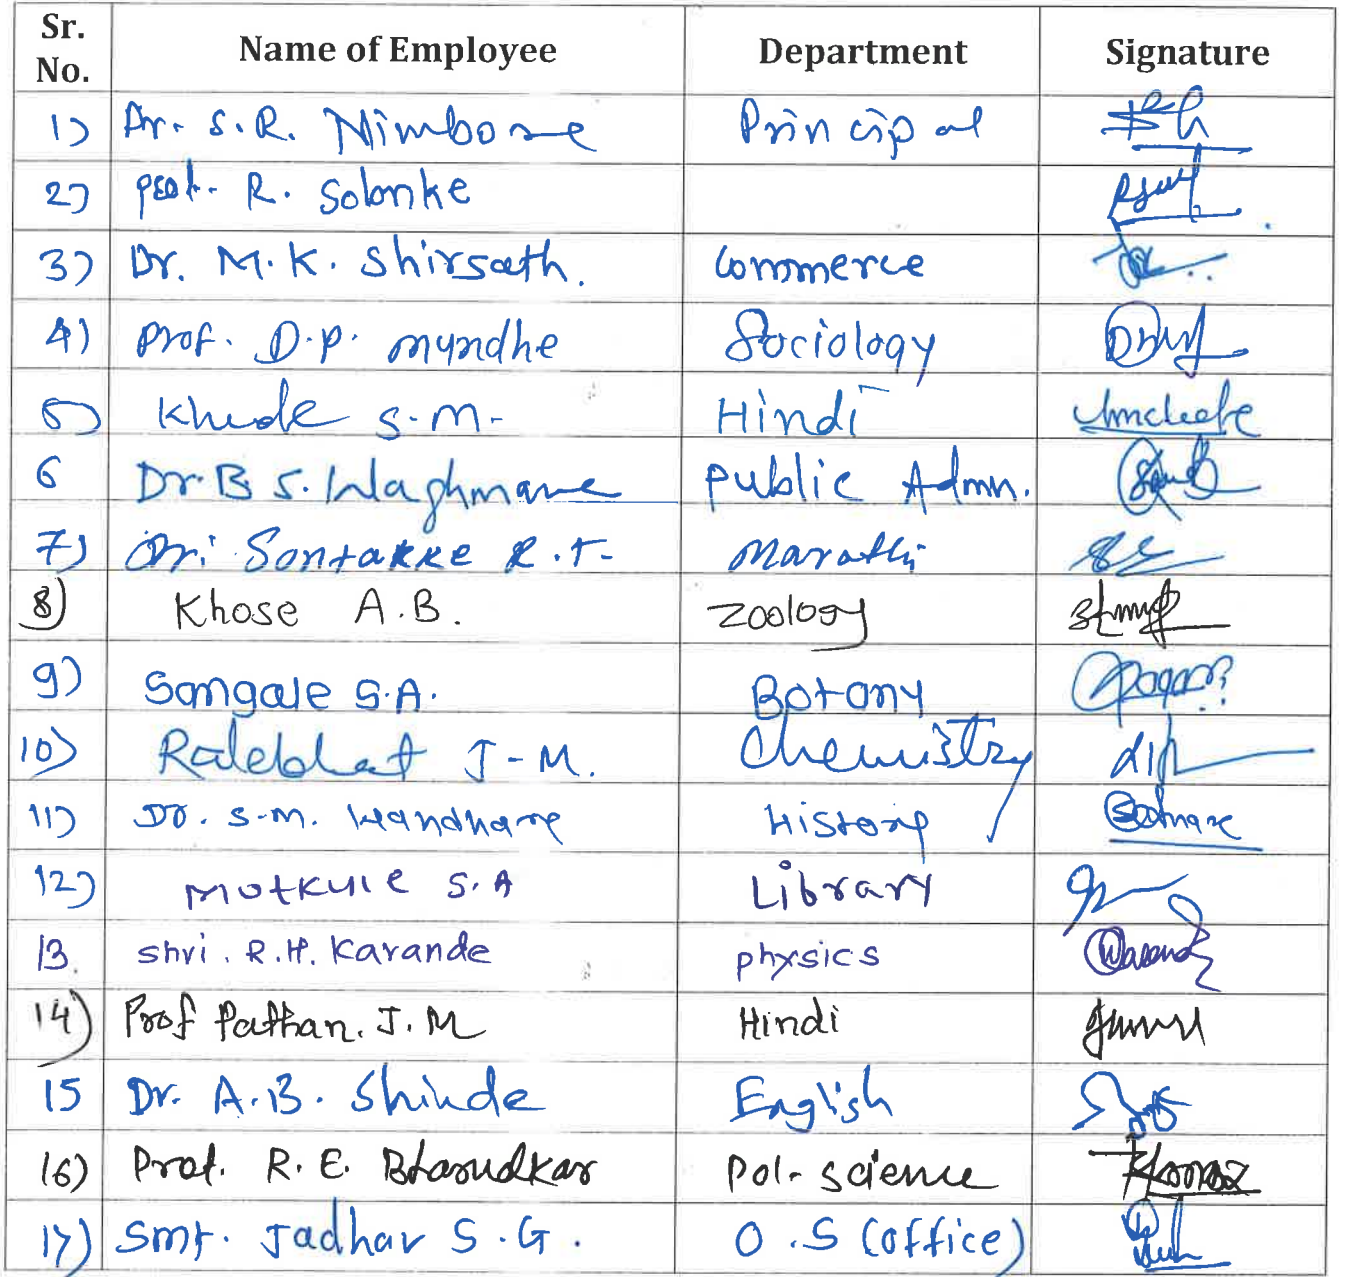 Sr. No. Name of Employee Department Signature
1) Dr. S.R. Nimbore Principal
2) Prof. R. Solanke
3) Dr. M.K. Shirsath. Commerce
4) Prof. D.P. Mundhe Sociology
5) Khude S.M. Hindi
6 Dr. B S. Waghmare Public Admn.
7) Sontakke R.T. Marathi
8) Khose A.B. Zoology
9) Sangale S.A. Botany
10) Ralebhat J-M. Chemistry
11) Dr. S.M. Wandhare History
12) Motkule S.A Library
13. Shri. R.H. Karande physics
14) Prof Pathan. J. M Hindi
15 Dr. A.B. Shinde English
16) Prof. R. E. Bharudkar Pol. Science
17) Smt. Jadhav S.G. O.S (office)